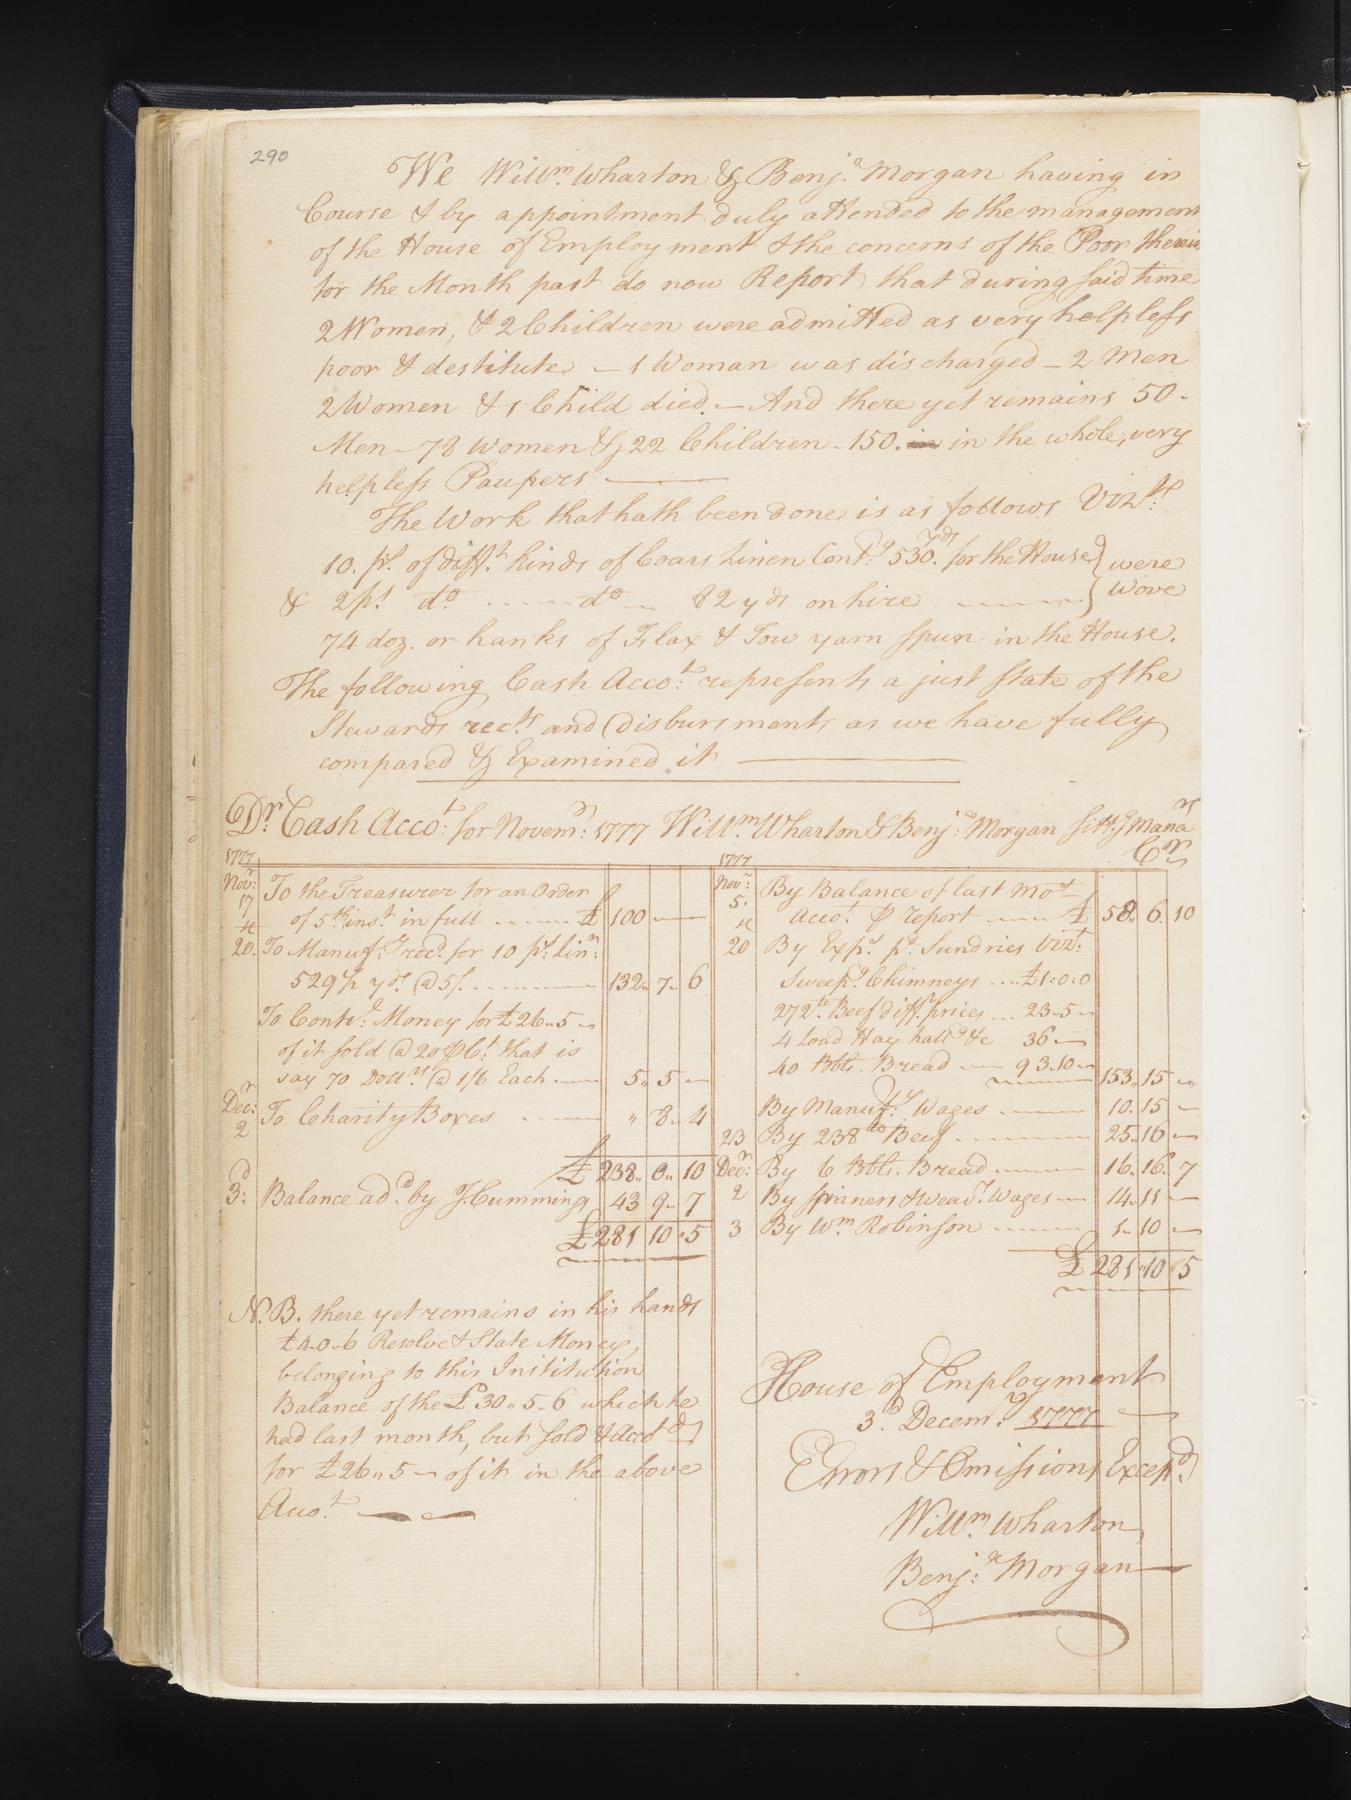 290
We Willm. Wharton & Benja. Morgan having in
Course & by appointment duly attended to the management
of the House of Employment & the concerns of the Poor therein
for the Month past do now Report that during said time
2 Women, & 2 Children were admitted as very helpless
poor & destitute – 1 Woman was discharged – 2 Men
2 Women & 1 Child died. – And there yet remains 50 -
Men – 78 Women & 22 Children – 150. in the whole, very
helpless Paupers
The Work that hath been done is as follows Vizt.
10. ps. of difft. kinds of Coars Linen Contg. 530. yds for the House } were
& 2 ps. do ........ do ... 82 yds on hire } wove
74 doz. or hanks of Flax & Tow yarn spun in the House.
The following Cash Accot. represents a just state of the
Stewards rects. and Disbursments as we have fully
compared & Examined it
Dr. Cash Accot. for Novemr: 1777 Willm. Wharton & Benja: Morgan sittg Manars
Cr
1777
Novr: 17 To the Treasurer for an Order
of 5th inst. in full ...... £ 100
20. To Manufy. recd. for 10 ps. Linn:
529½ yds. @ 5/. 132 " 7 " 6
To Contl. Money for £26 " 5 –
of it sold @ 20 ⅌ Ct. that is
say 70 Dollrs. @ 1/6 Each 5 " 5 –
Decr: 2 To Charity Boxes " 8 " 4
£ 238 " 0 " 10
3d: Balance add. by J. Cummings 43 9 " 7
£ 281 10 " 5
N.B. there yet remains in his hands
£4 " 0 " 6 Resolve & State Money,
belonging to this Institution
Balance of the £30 " 5 " 6 which he
had last month, but sold & Accotd
for £26 " 5 – of it in the above
Accot.
1777
Novr: 5. By Balance of last Mo
Accot. ⅌ report ...... £ 58 " 6 " 10
20 By Exps. pd. Sundries Vizt:
Sweepg. Chimneys .... £1 : 0 : 0
272 lb Beef difft. prices ... 23 " 5 –
4 Load Hay hallg. &c 36 –
40 Bbls. Bread 93 . 10 – 153 " 15 –
By Manufy: Wages 10 . 15 –
23 By 238 lb Beef 25 " 16 –
Decr: By 6 Bbls. Bread 16 . 16 . 7
2 By spinners & Weavs. Wages 14 " 11 –
3 By Wm Robinson 1 " 10 –
£ 281 " 10 " 5
House of Employment
3d. Decemr. 1777
Errors & Omissions Excepd.
Willm. Wharton,
Benja: Morgan